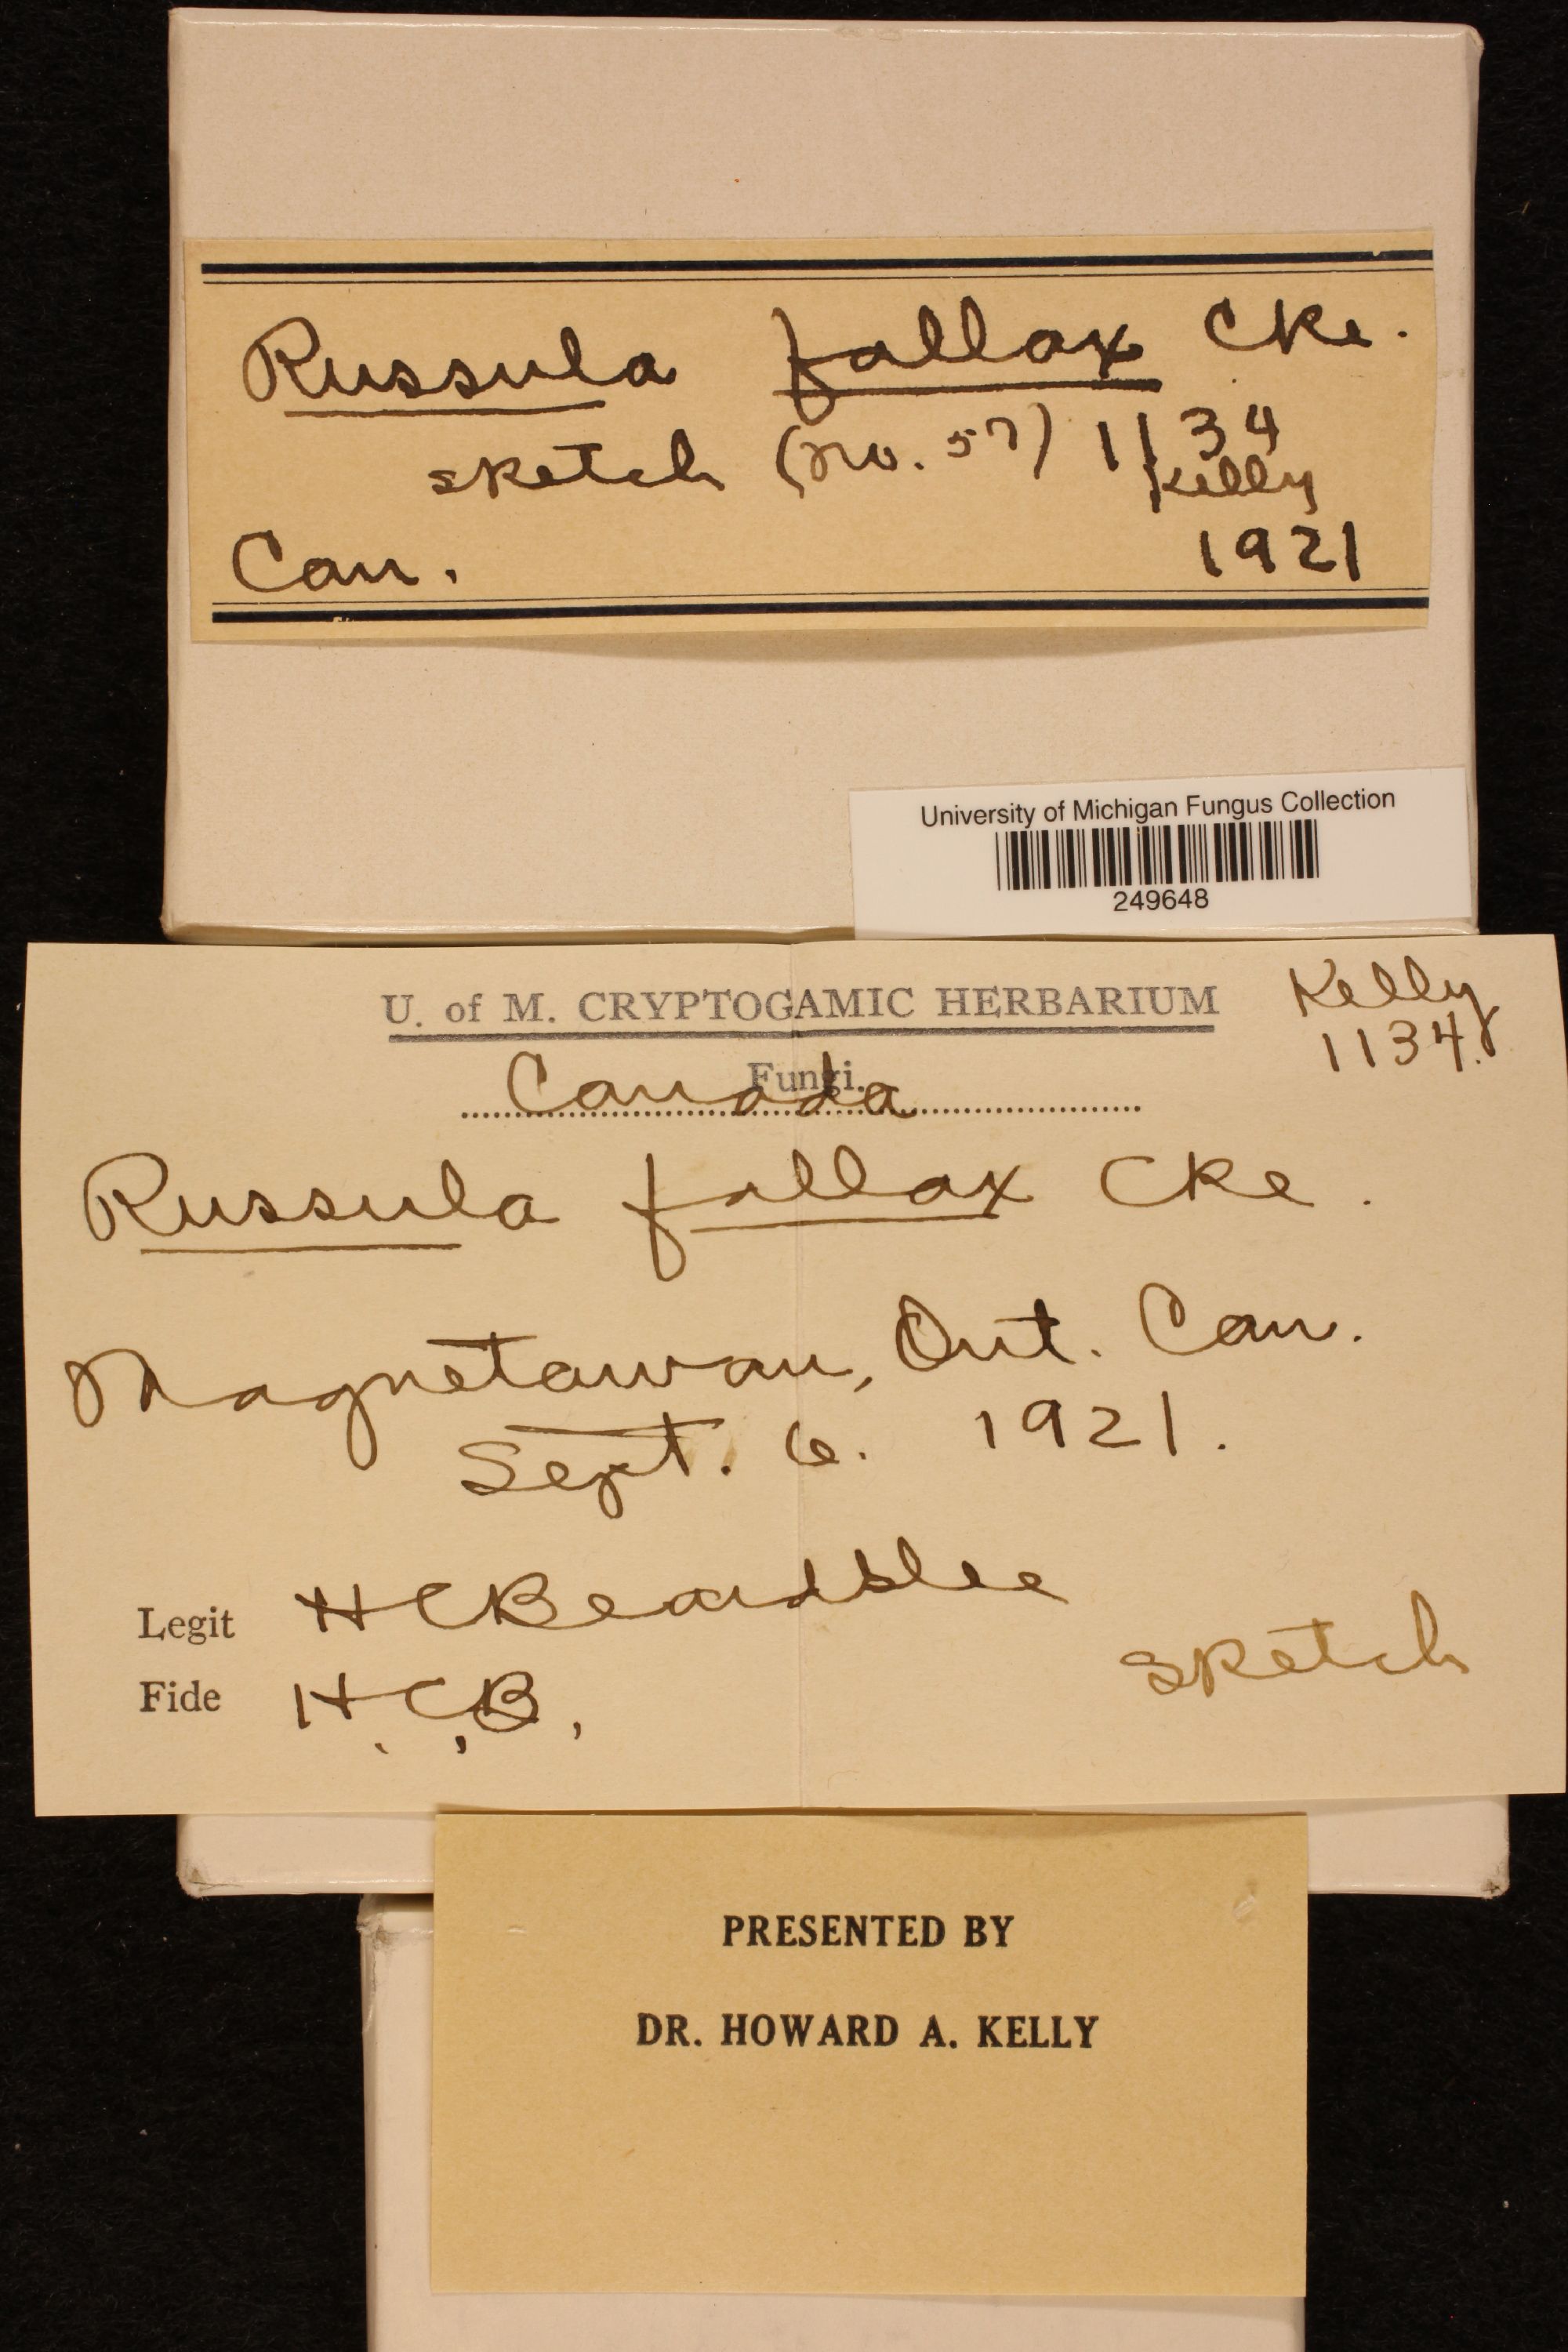 Russula fallax Cke.
sketch (no. 57) 1134
Kelly
Can. 1921
University of Michigan Fungus Collection
249648
U. of M. CRYPTOGAMIC HERBARIUM
Kelly
1134.
Fungi.
Canada
Russula fallax Cke.
Magnetawan, Ont. Can.
Sept. 6. 1921.
Legit H C Beardslee
sketch
Fide H.C.B.
PRESENTED BY
DR. HOWARD A. KELLY